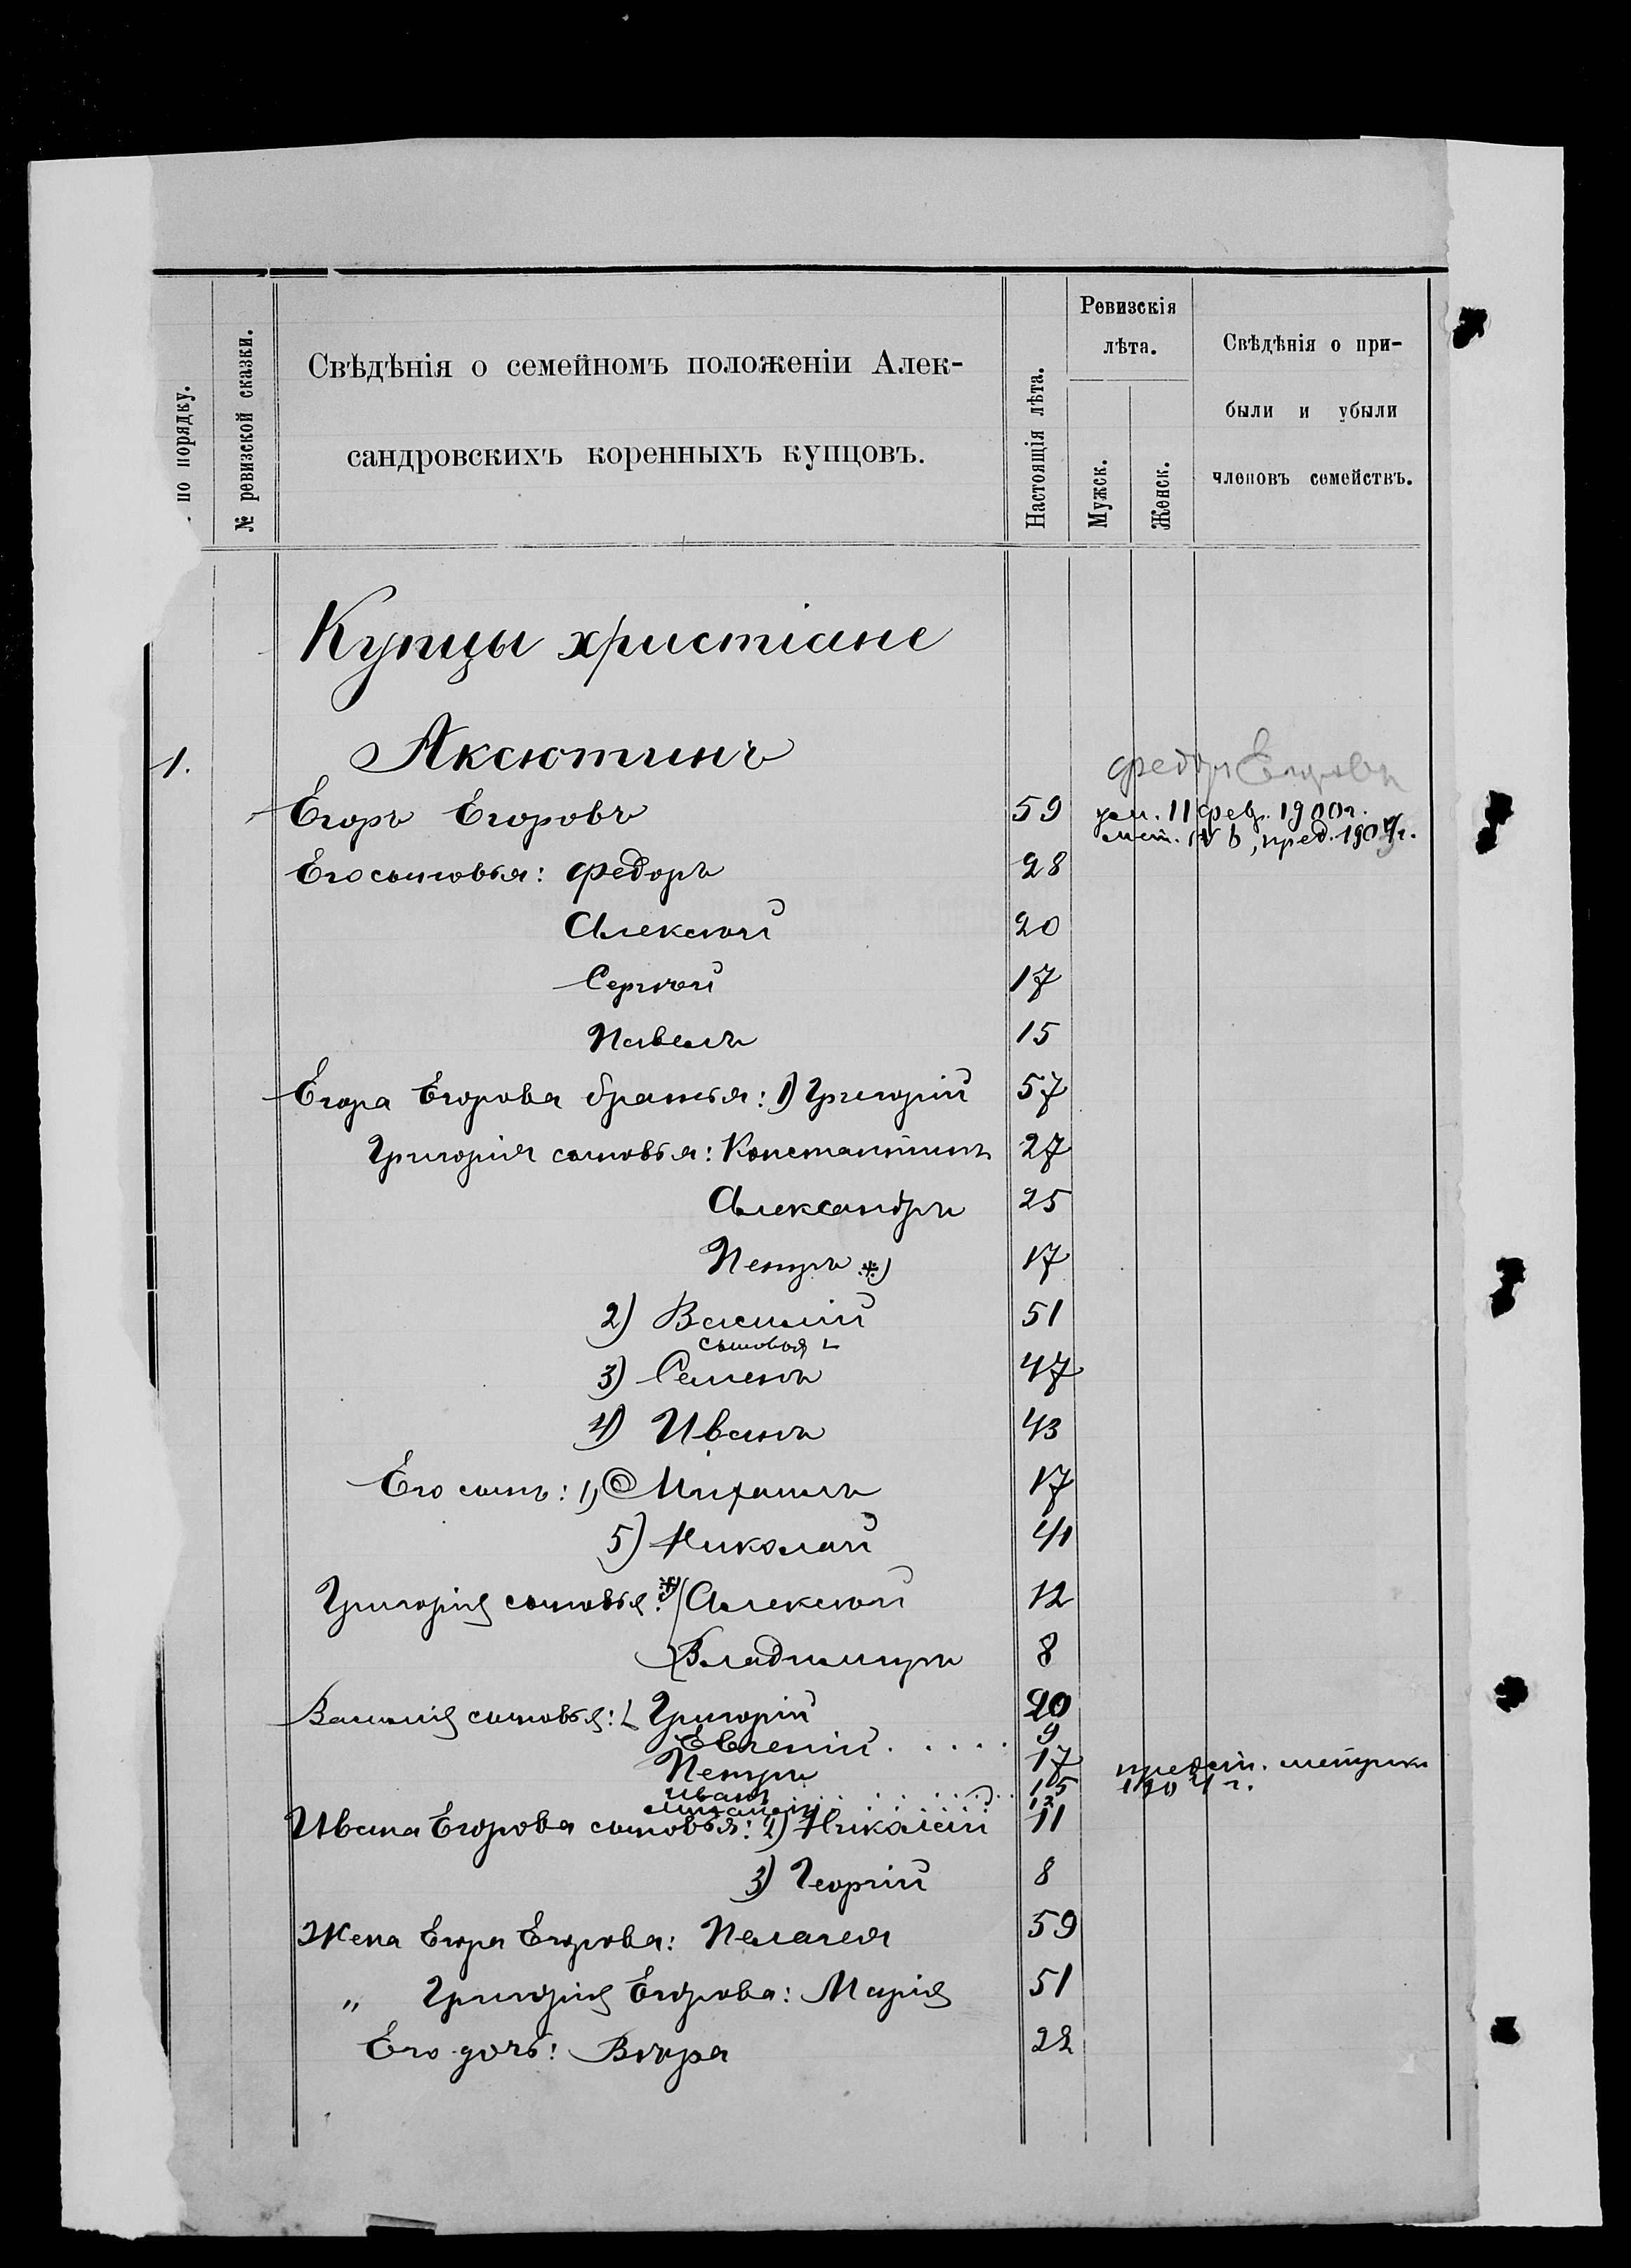 . по порядку.
№ ревизской сказки.
Свѣдѣнія о семейномъ положеніи Алек-
сандровскихъ коренныхъ купцовъ.
Настоящія лѣта.
Ревизскія
лѣта.
Мужск.
Женск.
Свѣдѣнія о при-
были и убыли
членовъ семействъ.
Купцы христіане
1. Аксютинъ
Федоръ Егоровъ
Егоръ Егоровъ 59 ум. 11 февр. 1900 г.
мет. № 6, пред. 1904 г.
Его сыновья: Федоръ 28
Алексѣй 20
Сергѣй 17
Павелъ 15
Егора Егорова братья: 1) Григорій 57
Григорія сыновья: Константинъ 27
Александръ 25
Петръ *) 17
2) Василій 51
сыновья L
3) Семенъ 47
4) Иванъ 43
Его сынъ: 1) Михаилъ 17
5) Николай 41
Григорія сыновья: *) Алексѣй 12
Владимиръ 8
Василія сыновья: L Григорій 20
Евгеній . . . . . 9
Петръ 17 предст. метрики
Иванъ . . . . . . . 15 1904 г.
Михаилъ . . . . . . 12
Ивана Егорова сыновья: 2) Николай 11
3) Георгій 8
Жена Егора Егорова: Пелагея 59
„ Григорія Егорова: Марія 51
Его дочь: Вѣра 22